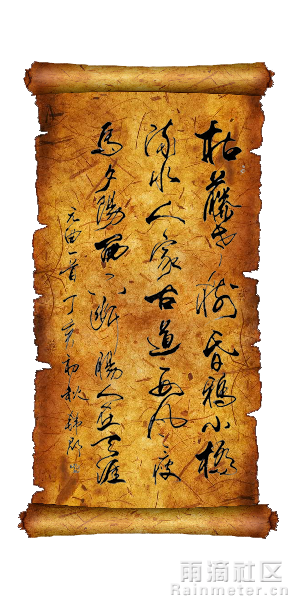 枯藤老樹昏鴉小橋
流水人家古道西风瘦
馬夕陽西下断腸人在天涯
元曲一首丁亥初秋
雨滴社区
Rainmeter.cn